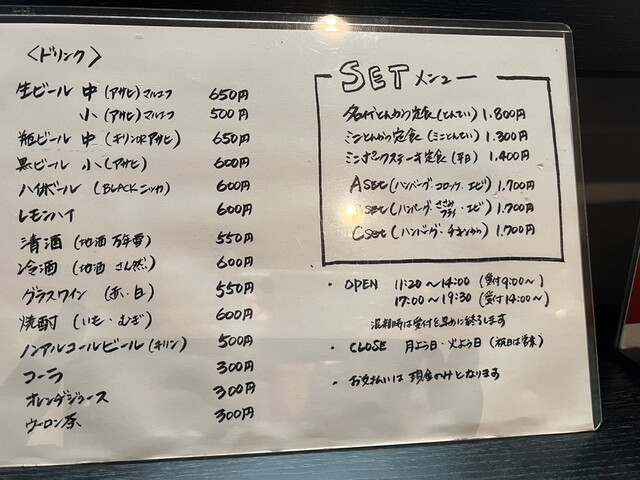 〈ドリンク〉
生ビール 中 (アサヒ) マルエフ 650円
小 (アサヒ) マルエフ 500円
瓶ビール 中 (キリンorアサヒ) 650円
黒ビール 小 (アサヒ) 600円
ハイボール (BLACKニッカ) 600円
レモンハイ 600円
清酒 (地酒 万年雪) 550円
冷酒 (地酒 さん然) 600円
グラスワイン (赤・白) 550円
焼酎 (いも・むぎ) 600円
ノンアルコールビール (キリン) 500円
コーラ 300円
オレンジジュース 300円
ウーロン茶 300円
SETメニュー
名代とんかつ定食 (とんてい) 1.800円
ミニとんかつ定食 (ミニとんてい) 1.300円
ミニポークステーキ定食 (平日) 1.400円
A set (ハンバーグ・コロッケ・エビ) 1.700円
set (ハンバーグ・ささみフライ・エビ) 1.700円
C set (ハンバーグ・チキンから) 1.700円
・OPEN 11:30〜14:00 (受付9:00〜)
17:00〜19:30 (受付14:00〜)
混雑時は受付を早めに終了します
・CLOSE 月よう日・火よう日 (祝日は営業)
・お支払いは現金のみとなります